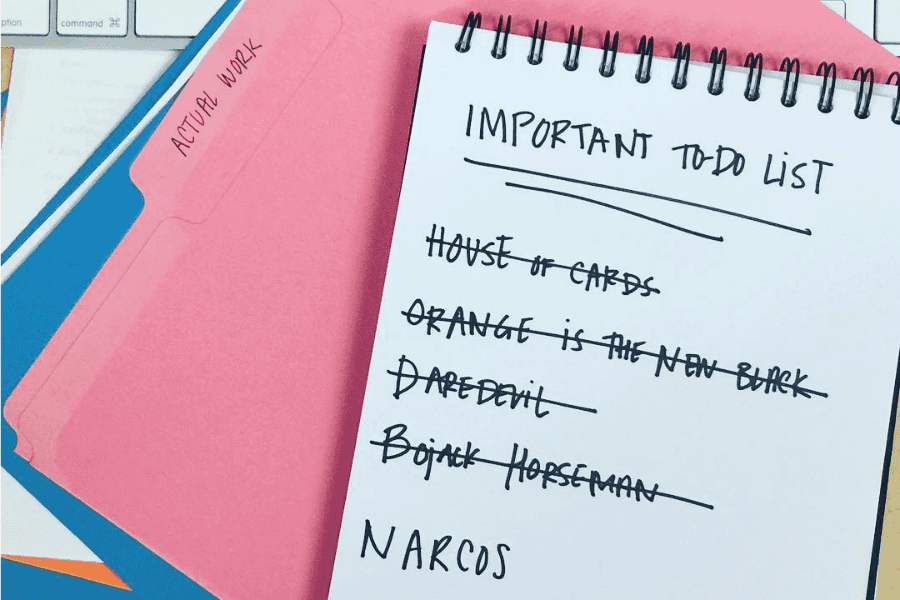 ption
command ⌘
ACTUAL WORK
IMPORTANT TO-DO LIST
HOUSE OF CARDS
ORANGE iS THE NEW BLACK
DAREDEViL
BoJACK HORSEMAN
NARCOS